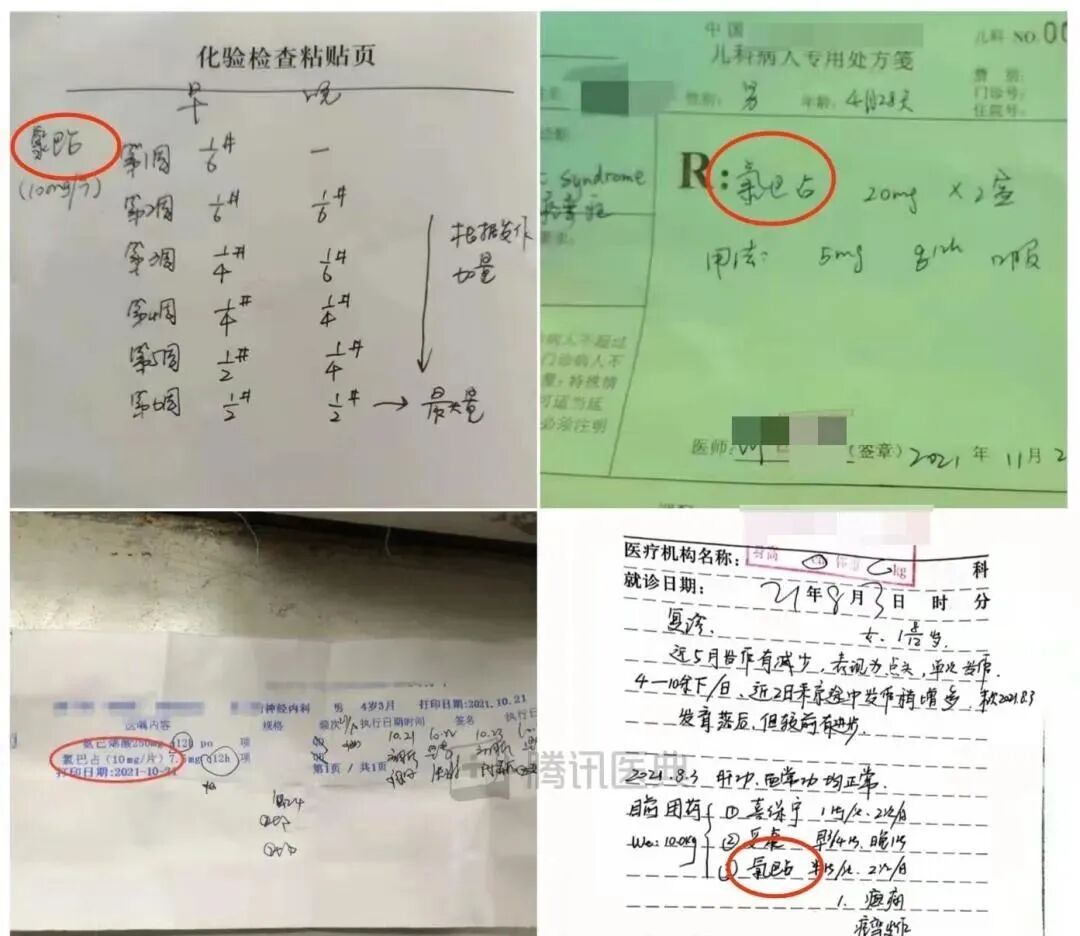 化验检查粘贴页
早 晚
氯巴占
(10mg/片)
第1周 1/6# 一
第2周 1/6# 1/6#
第3周 1/4# 1/6#
第4周 1/4# 1/4#
第5周 1/2# 1/4#
第6周 1/2# 1/2# → 最大量
根据发作
加量
中国
儿科病人专用处方笺
儿科 NO.00
性别: 男 年龄: 4月28天
费别:
门诊号:
住院号:
syndrome
R: 氯巴占 20mg × 2盒
用法: 5mg q12h 口服
病人不超过
门诊病人不
量;特殊情
可适当延
必须注明
医师: (签章) 2021 年 11月2
神经内科 男 4岁3月 打印日期:2021.10.21
医嘱内容 规格 频次 执行日期时间 签名 执行日
10.21 10.22 10.23
氨己烯酸250mg q12h po 项
氯巴占(10mg/片) 7.5mg q12h 项
打印日期:2021-10-21 第1页 / 共1页
腾讯医典
医疗机构名称: 科
kg
就诊日期: 21年8月3日 时 分
复诊. 女. 1 8/12岁.
近5月发作有减少,表现为点头,单次发作.
4—10余下/日、近2日来京途中发作稍增多,
2021.8.3
发育落后,但较前有进步.
2021.8.3 肝功,血常功均正常.
目前用药 ① 喜保宁 1片/次. 2次/日
We: 10.0kg ② 早3/4片、晚1片
③ 氯巴占 半片/次. 2次/日
1. 癫痫